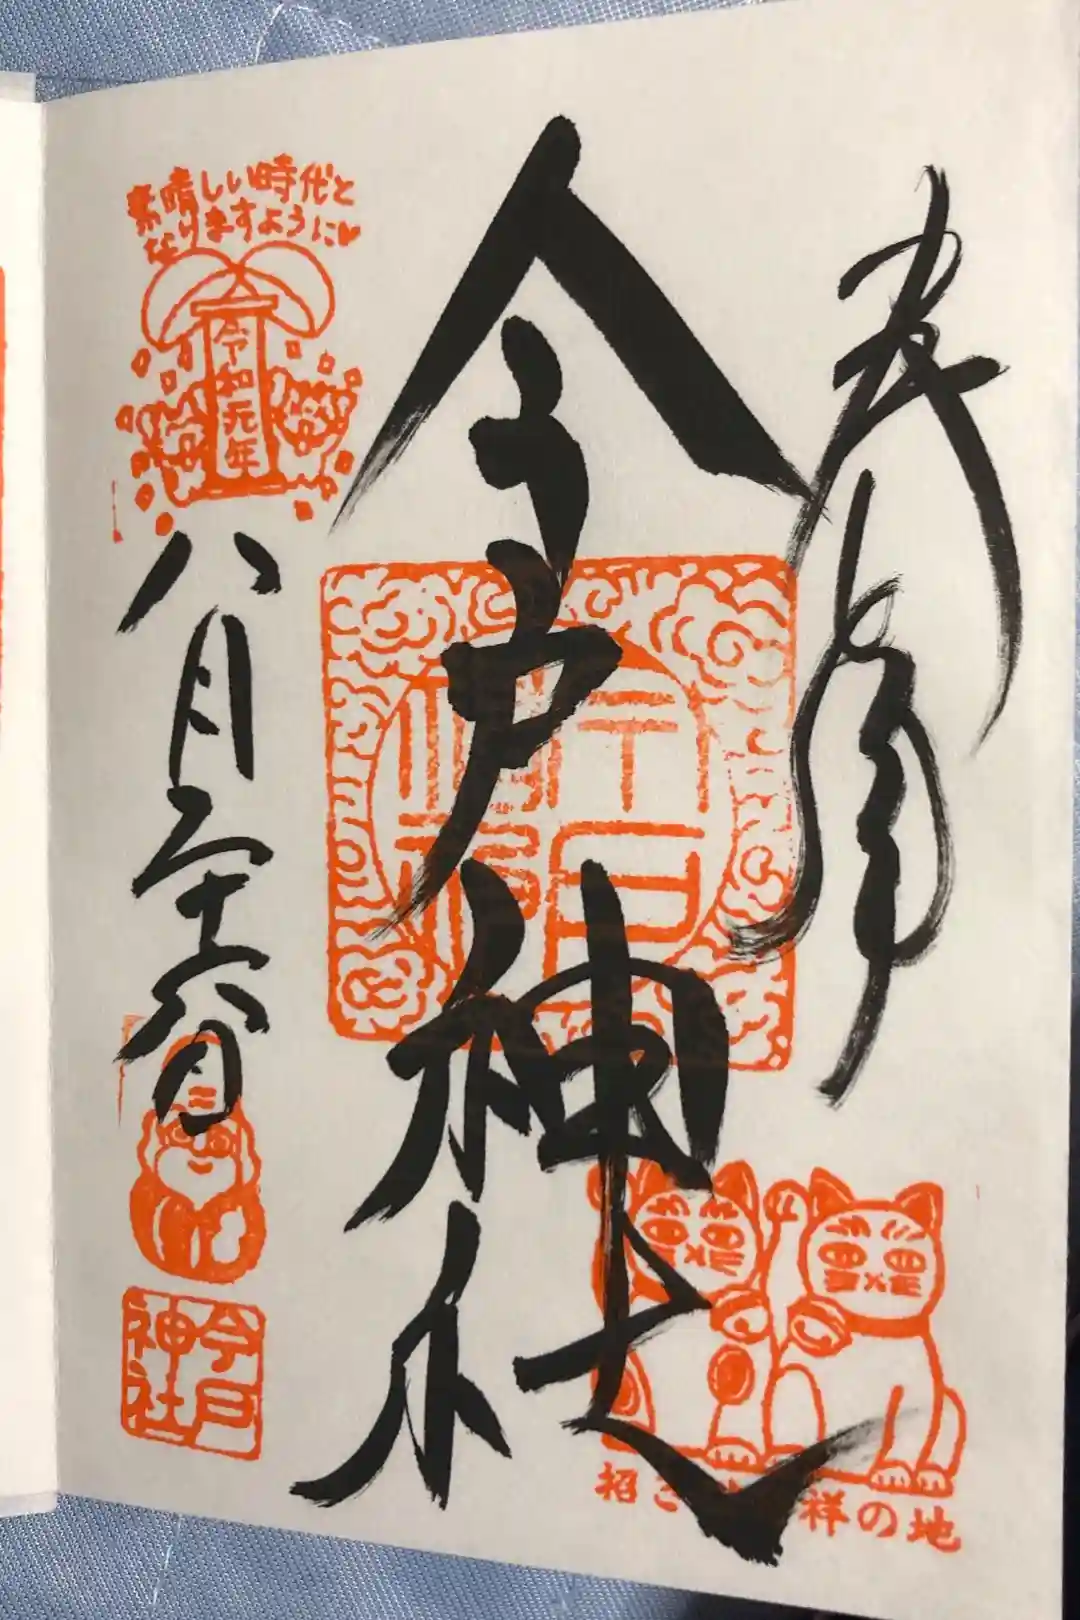 奉拝
今戸神社
素晴しい時代と
なりますように♥
令和元年
八月二十六日
今戸
神社
招き
祥の地